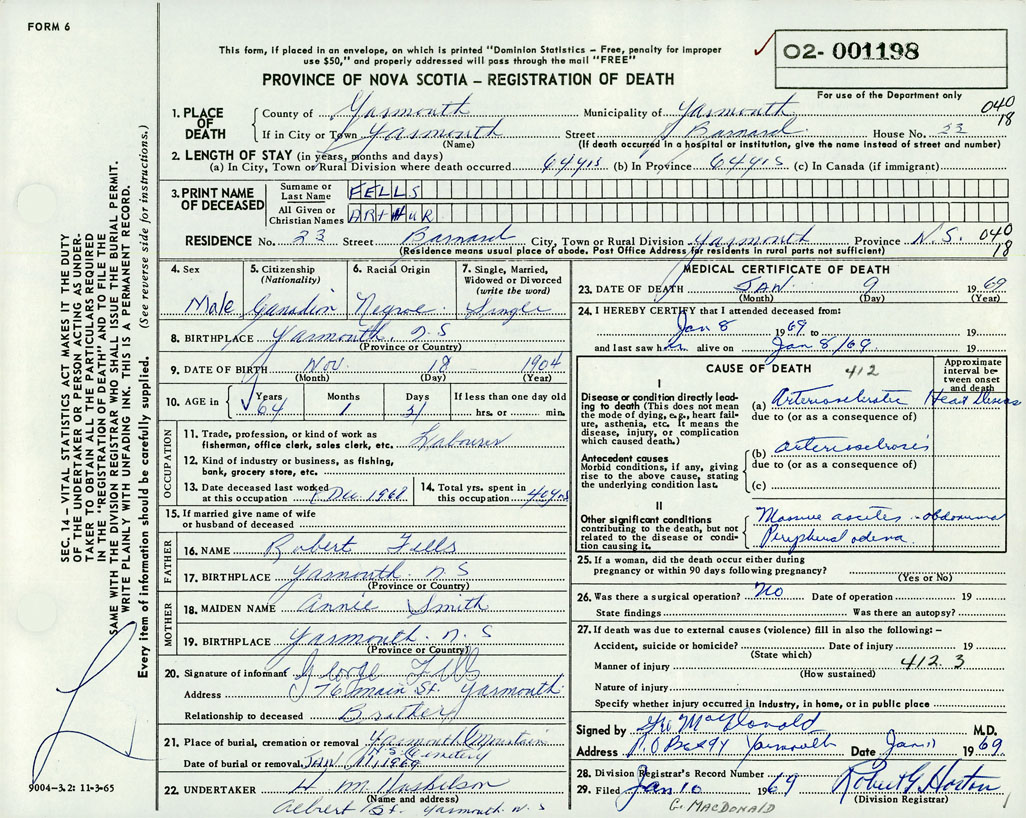 FORM 6
This form, if placed in an envelope, on which is printed "Dominion Statistics – Free, penalty for improper
use $50," and properly addressed will pass through the mail "FREE"
02- 001198
PROVINCE OF NOVA SCOTIA – REGISTRATION OF DEATH
For use of the Department only
1. PLACE OF DEATH
County of Yarmouth Municipality of Yarmouth 040
If in City or Town Yarmouth Street Barnard House No. 23 18
(Name) (If death occurred in a hospital or institution, give the name instead of street and number)
2. LENGTH OF STAY (in years, months and days)
(a) In City, Town or Rural Division where death occurred 64 yrs (b) In Province 64 yrs (c) In Canada (if immigrant)
3. PRINT NAME OF DECEASED
Surname or Last Name FELLS
All Given or Christian Names ARTHUR
RESIDENCE No. 23 Street Barnard City, Town or Rural Division Yarmouth Province N.S. 040
(Residence means usual place of abode. Post Office Address for residents in rural parts not sufficient) 18
4. Sex
Male
5. Citizenship
(Nationality)
Canadian
6. Racial Origin
Negroe
7. Single, Married,
Widowed or Divorced
(write the word)
Single
8. BIRTHPLACE Yarmouth, N.S
(Province or Country)
9. DATE OF BIRTH Nov 18 1904
(Month) (Day) (Year)
10. AGE in Years Months Days If less than one day old
64 1 21 hrs. or min.
OCCUPATION
11. Trade, profession, or kind of work as
fisherman, office clerk, sales clerk, etc. Labourer
12. Kind of industry or business, as fishing,
bank, grocery store, etc.
13. Date deceased last worked
at this occupation Dec. 1968
14. Total yrs. spent in
this occupation 40 yrs
15. If married give name of wife
or husband of deceased
FATHER
16. NAME Robert Fells
17. BIRTHPLACE Yarmouth N S
(Province or Country)
MOTHER
18. MAIDEN NAME Annie Smith
19. BIRTHPLACE Yarmouth. N. S
(Province or Country)
20. Signature of informant George Fells
Address 76 Main St. Yarmouth
Relationship to deceased Brother
21. Place of burial, cremation or removal Yarmouth Mountain
Cemetery
Date of burial or removal JAN 1969
22. UNDERTAKER H M Huskilson
(Name and address)
Albert St. Yarmouth N. S
MEDICAL CERTIFICATE OF DEATH
23. DATE OF DEATH JAN 9 1969
(Month) (Day) (Year)
24. I HEREBY CERTIFY that I attended deceased from:
Jan 8 1969 to 19
and last saw him alive on Jan 8/69 19
CAUSE OF DEATH 412
Approximate
interval be-
tween onset
and death
I
Disease or condition directly lead-
ing to death (This does not mean
the mode of dying, e.g., heart failure,
asthenia, etc. It means the
disease, injury, or complication
which caused death.)
(a) Arteriosclerotic Heart Disease
due to (or as a consequence of)
Antecedent causes
Morbid conditions, if any, giving
rise to the above cause, stating
the underlying condition last.
(b) arteriosclerosis
due to (or as a consequence of)
(c)
II
Other significant conditions
contributing to the death, but not
related to the disease or condi-
tion causing it.
Massive ascites - abdominal
Peripheral edema
25. If a woman, did the death occur either during
pregnancy or within 90 days following pregnancy?
(Yes or No)
26. Was there a surgical operation? No Date of operation 19
State findings Was there an autopsy?
27. If death was due to external causes (violence) fill in also the following: –
Accident, suicide or homicide? Date of injury 19
(State which)
Manner of injury 412.3
(How sustained)
Nature of injury
Specify whether injury occurred in industry, in home, or in public place
Signed by MacDonald M.D.
Address P.O Box Yarmouth Date Jan 11 1969
28. Division Registrar's Record Number
29. Filed Jan 10 1969 Robert G Horton
(Division Registrar)
G. MACDONALD
SEC. 14 – VITAL STATISTICS ACT MAKES IT THE DUTY
OF THE UNDERTAKER OR PERSON ACTING AS UNDER-
TAKER TO OBTAIN ALL THE PARTICULARS REQUIRED
IN THE "REGISTRATION OF DEATH" AND TO FILE THE
SAME WITH THE DIVISION REGISTRAR WHO SHALL ISSUE THE BURIAL PERMIT.
WRITE PLAINLY WITH UNFADING INK. THIS IS A PERMANENT RECORD.
Every item of information should be carefully supplied. (See reverse side for instructions.)
9004-3.2: 11-3-65